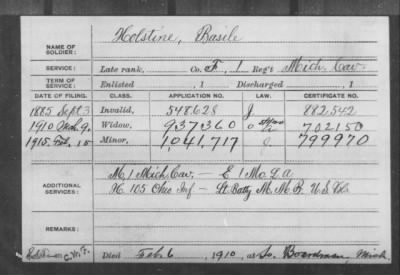 Holstine, Basile
NAME OF SOLDIER:
SERVICE: Late rank, Co. F, 1 Reg't Mich. Cav.
TERM OF SERVICE: Enlisted , 1 Discharged , 1
DATE OF FILING. CLASS. APPLICATION NO. LAW. CERTIFICATE NO.
1885 Sept 3 Invalid, 548.628 J 882.542
1910 9. Widow, 937.360 702150
1915. 15 Minor, 1,041,717 799970
ADDITIONAL SERVICES:
M, 1 Mich Cav. — E 1 Mo L A
H. 105 Ohio Inf — Lt. Batty M. M. B. U.S. Vols
REMARKS:
Died Feb. 6, 1910, at So. Boardman, Mich